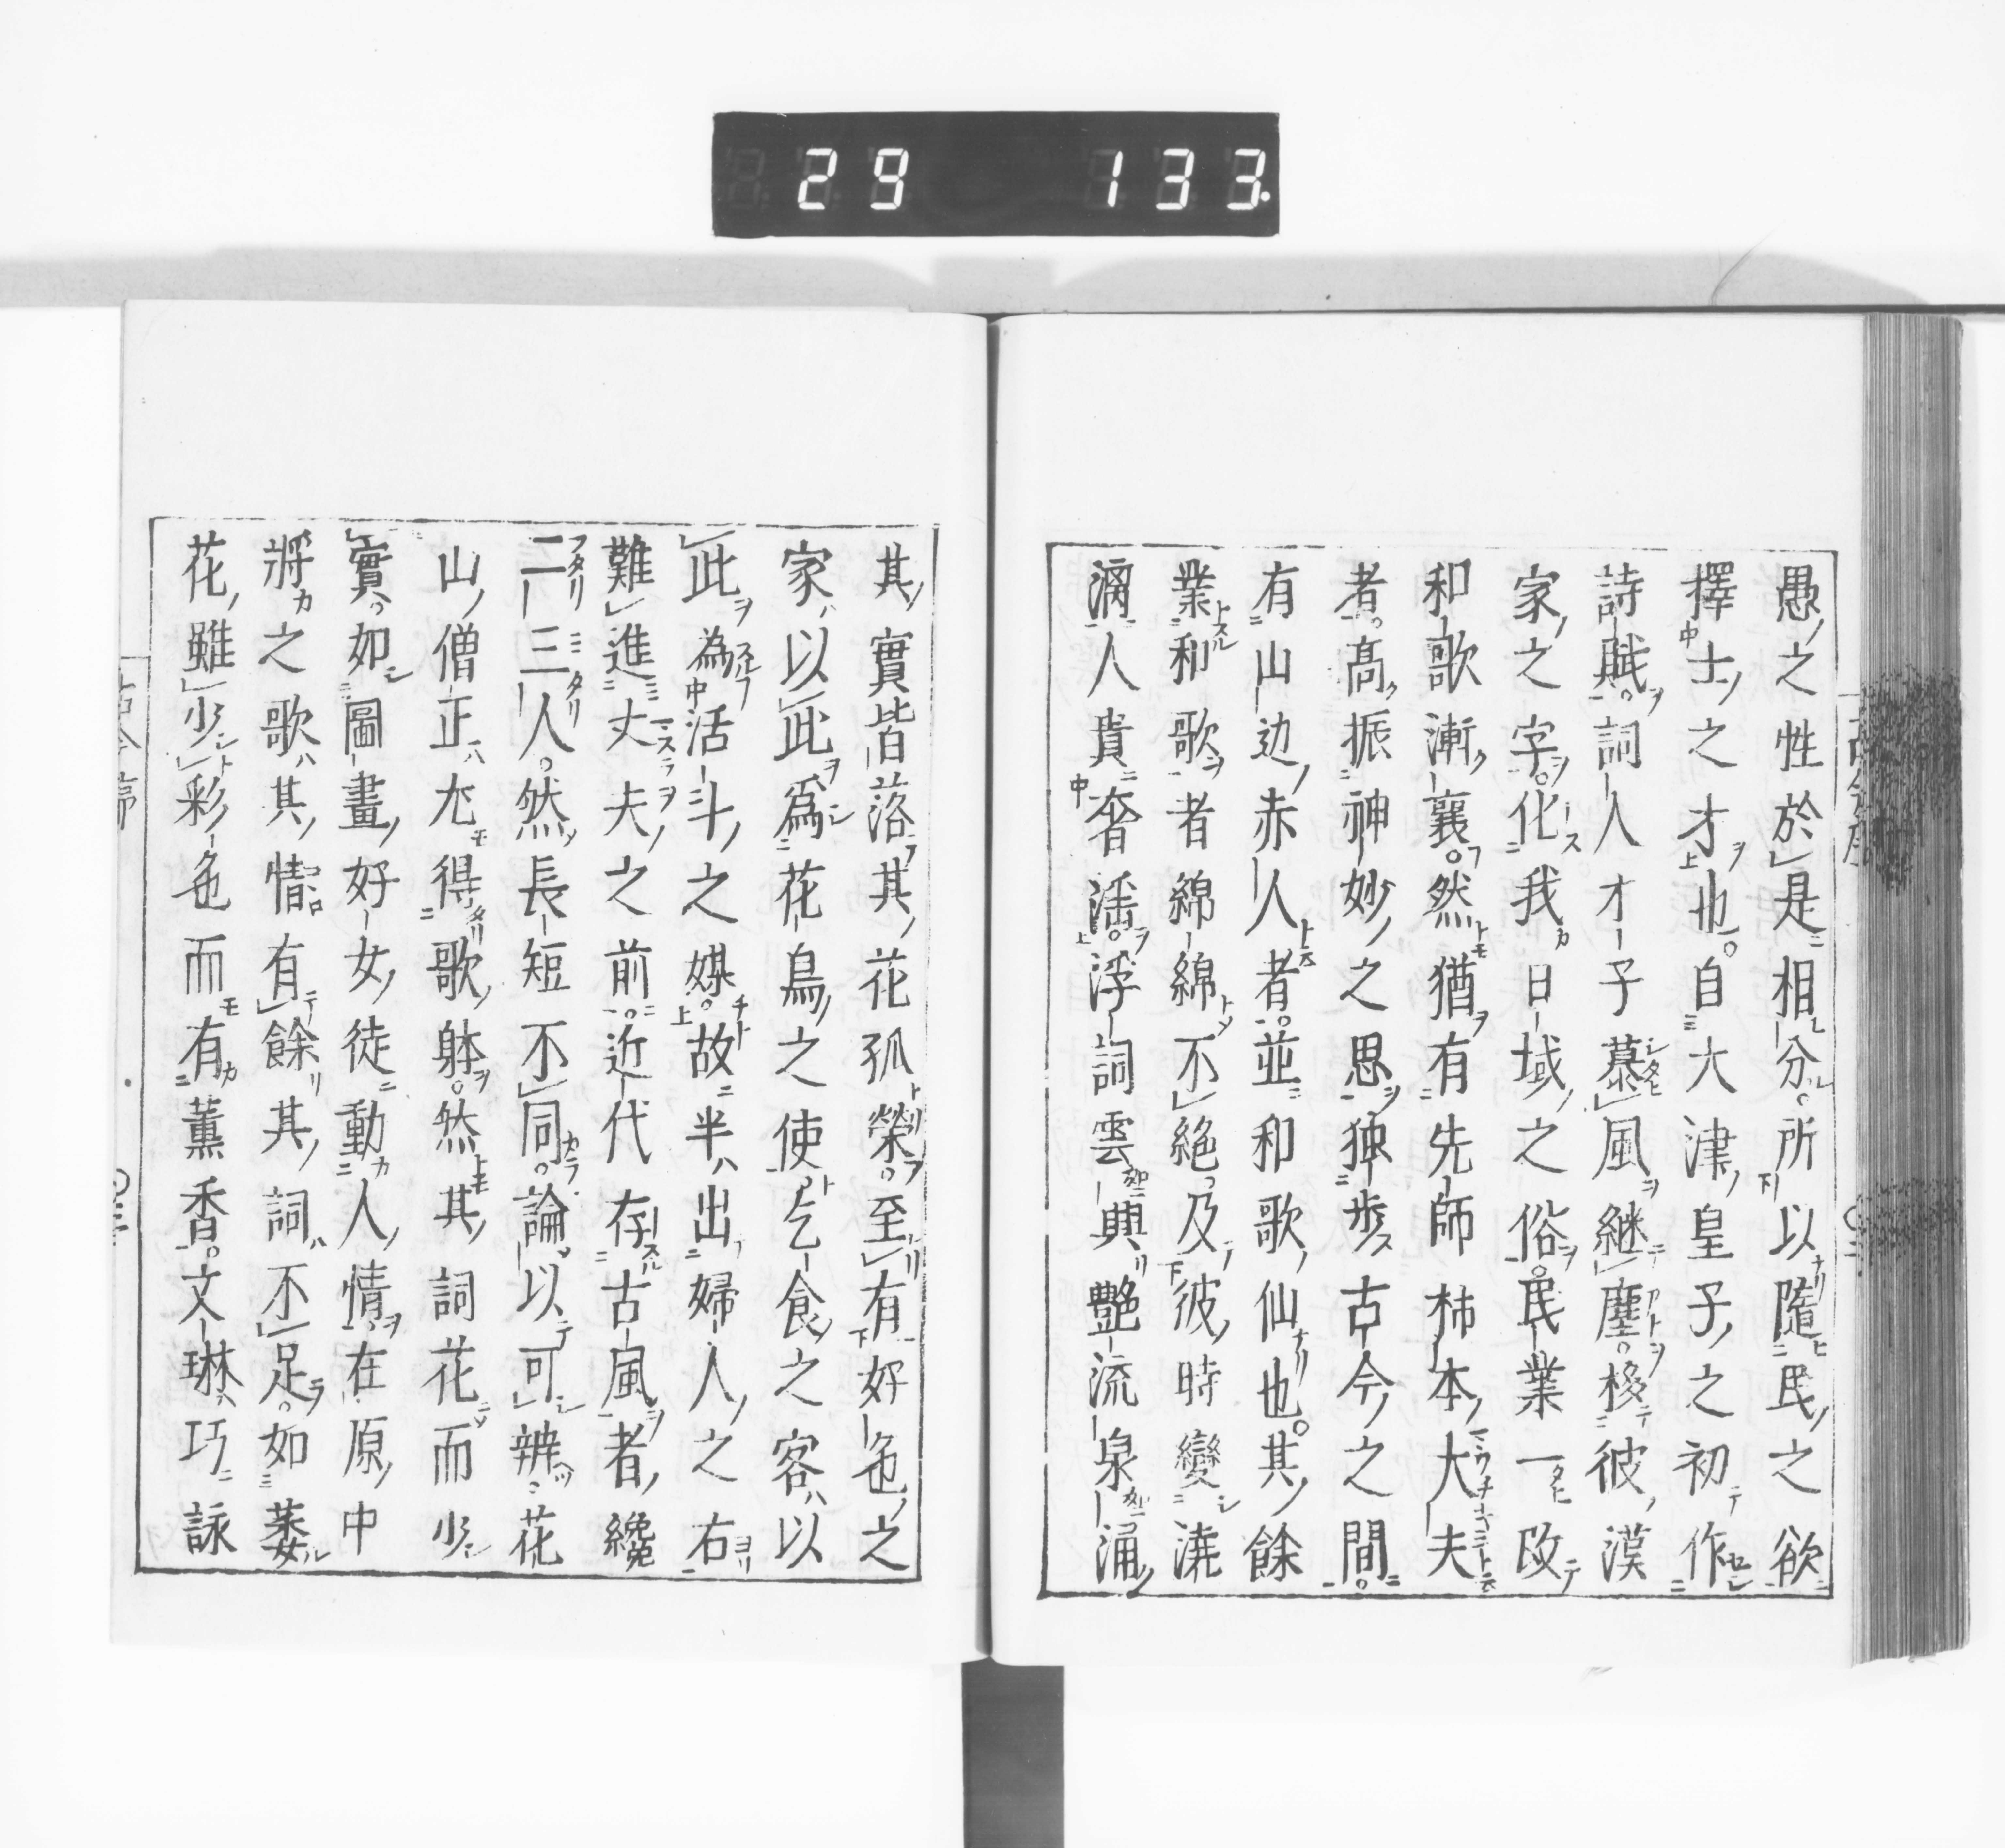 29 133
愚之性於是相分所以隨民之欲
擇士之才也自大津皇子之初作
詩賦詞人才子慕風継塵移彼漢
家之字化我日域之俗民業一改
和歌漸襄然猶有先師柿本大夫
者高振神妙之思独歩古今之間
有山边赤人者並和歌仙也其餘
業和歌者綿綿不絶及彼時變澆
漓人貴奢滛浮詞雲興艶流泉涌
其實皆落其花孤榮至有好色之
家以此爲花鳥之使乞食之客以
此為活斗之媒故半出婦人之右
難進丈夫之前近代存古風者纔
二三人然長短不同論以可辨花
山僧正尤得歌躰然其詞花而少
實如圖畫好女徒動人情在原中
將之歌其情有餘其詞不足如萎
花雖少彩色而有薫香文琳巧詠